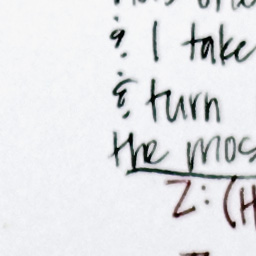 & I take
& turn
the mos
Z: (H